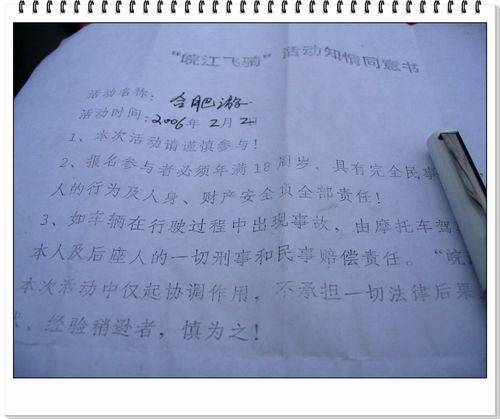 “皖江飞骑”活动知情同意书
活动名称：合肥游
活动时间：2006年2月2日
1、本次活动请谨慎参与！
2、报名参与者必须年满18周岁、具有完全民事
人的行为及人身、财产安全负全部责任！
3、如车辆在行驶过程中出现事故，由摩托车驾
本人及后座人的一切刑事和民事赔偿责任。“皖江
本次活动中仅起协调作用，不承担一切法律后果
、经验稍逊者，慎为之！